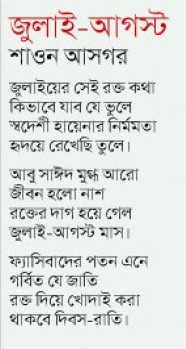 জুলাই-আগস্ট
শাওন আসগর
জুলাইয়ের সেই রক্ত কথা
কিভাবে যাব যে ভুলে
স্বদেশী হায়েনার নির্মমতা
হৃদয়ে রেখেছি তুলে।
আবু সাঈদ মুগ্ধ আরো
জীবন হলো নাশ
রক্তের দাগ হয়ে গেল
জুলাই-আগস্ট মাস।
ফ্যাসিবাদের পতন এনে
গর্বিত যে জাতি
রক্ত দিয়ে খোদাই করা
থাকবে দিবস-রাতি।